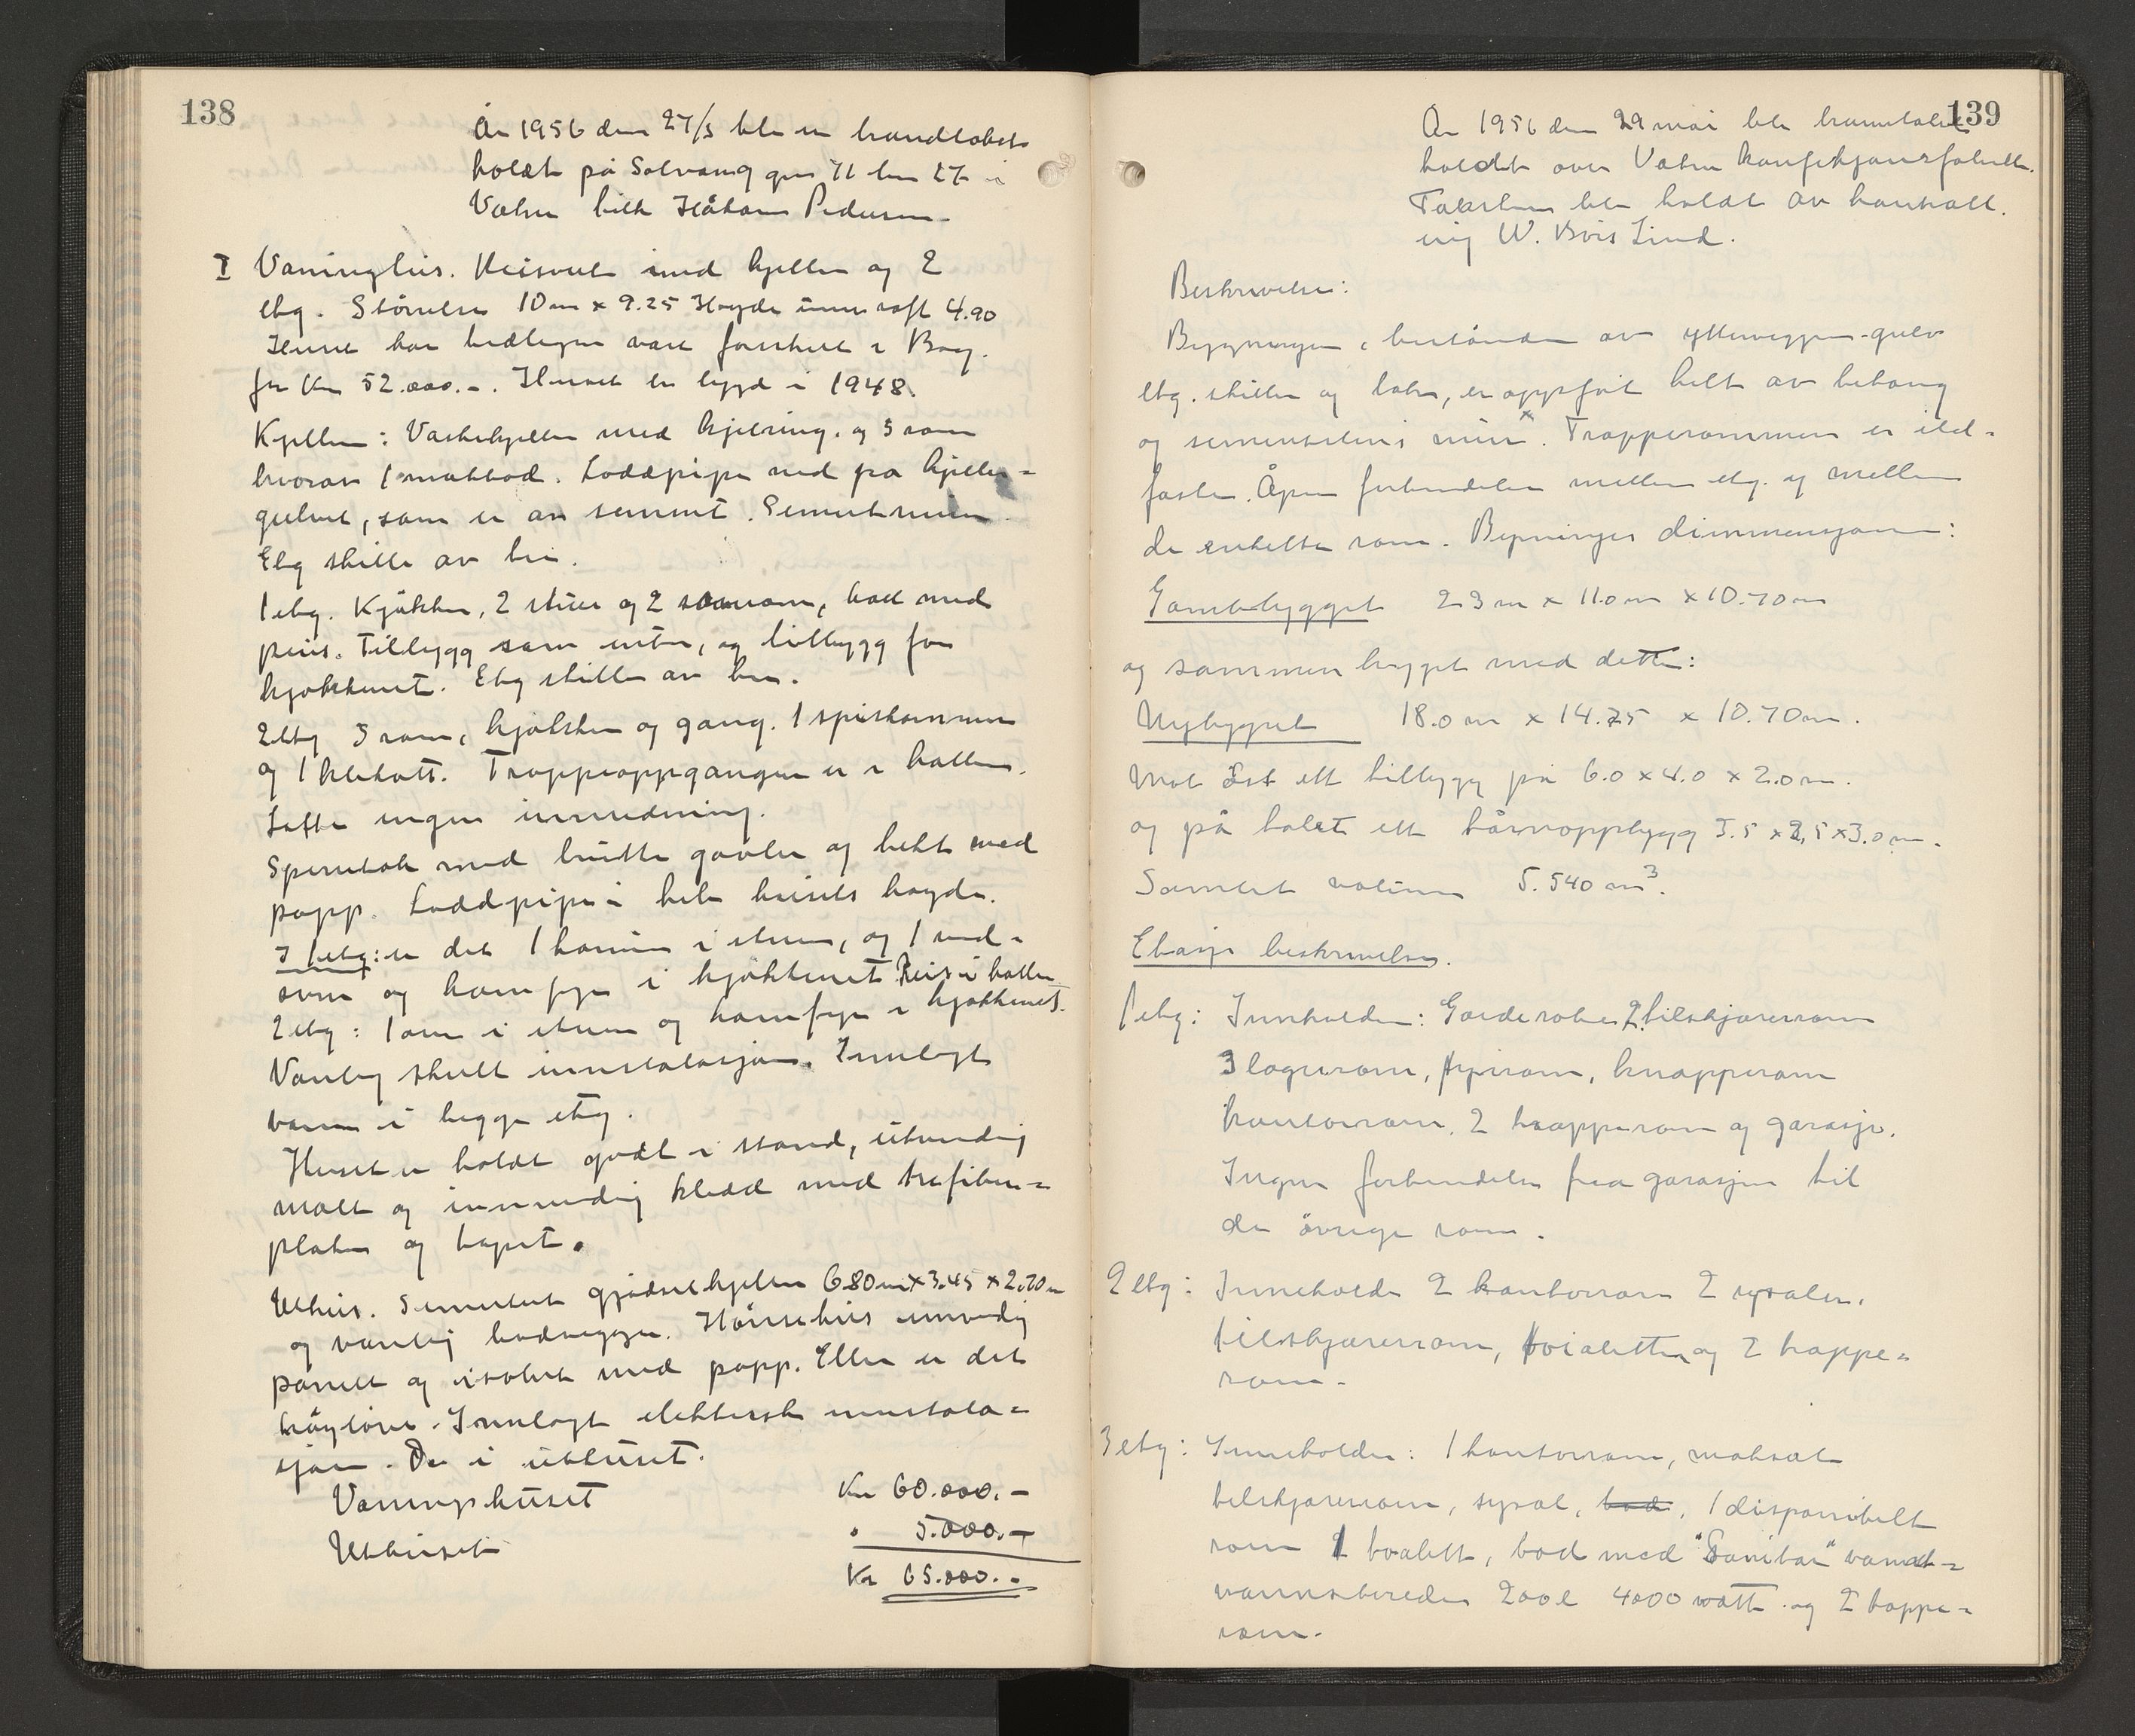 138
År 1956 den 27/3 ble en brandtakst
holdt på Solvang gnr 71 bnr 27 i
Vatne tilh Håkon Pedersen.
I Våningshus. Reisverk med kjeller og 2
etg. Størrelse 10 m x 9.25 Høyde under raft 4.90
Huset har tidligere vært forsikret i Brag.
for Kr 52.000.-. Huset er bygd i 1948.
Kjeller: Vaskekjeller med kjelring. og 3 rom
hvorav 1 matbod. Loddpipe ned på kjeller=
gulvet, som er av sement. Sementmur
Etg skille av tre.
1 etg. Kjøkken, 2 stuer og 2 soverom, hall med
peis. Tilbygg som entre, og tilbygg for
kjøkkenet. Etg skille av tre.
2 etg 3 rom, kjøkken og gang. 1 spiskammer
og 1 klekott. Trappeoppgangen er i hallen.
Lofte ingen innredning.
Sperretak med brutte gavler og tekt med
papp. Loddpipe i hele husets høyde.
I 1 etg: er det 1 kamin i stuen, og 1 ved=
ovn og komfyr i kjøkkenet Peis i hallen
2 etg: 1 ovn i stuen og komfyr i kjøkkenet.
Vanlig skult innstalasjon. Innlagt
vann i begge etg.
Huset er holdt godt i stand, utvendig
malt og innvendig kledd med trefiber=
plater og tapet.
Uthus. Sementert gjødselkjeller 6.80 m x 3.45 x 2.70 m
og vanlig bordvegger. Hønsehus innvendig
panelt og isolert med papp. Ellers er det
høyløe. Innlagt elektrisk innstala=
sjon. Do i uthuset.
Våningshuset Kr 60.000.-
Uthuset " 5.000.-
Kr 65.000.-
139
År 1956 den 29 mai ble branntakst
holdt over Vatne Konfeksjonsfabrikk.
Taksten ble holdt av
W. Bvis Lind.
Beskrivelse:
Bygningen, bestående av yttervegger-gulv
etg. skiller og tak, er oppført helt av betong
og sementstens mur x. Trapperommene er ild=
faste. Åpen forbindelse mellom etg. og mellom
de enkelte rom. Bygninges dimmensjoner:
Gamlebygget 23 m x 11.0 m x 10.70 m
og sammen bygget med dette:
Nybygget 18.0 m x 14.75 x 10.70 m.
Mot øst ett tilbygg på 6.0 x 4.0 x 2.0 m.
og på taket ett tårnoppbygg 3.5 x 2,5 x 3.0 m.
Samlet volum 5.540 m3.
Etasje beskrivelse.
1 etg: Inneholder: Garderobe 2 tilskjærerrom
3 lagerrom, fyrrom, knapperom
kontorrom, 2 trapperom og garasje.
Ingen forbindelse fra garasjen til
de øvrige rom.
2 etg: Inneholder 2 kontorrom 2 sysaler,
tilskjærerrom, toialetter og 2 trappe=
rom.
3 etg: Inneholder: 1 kontorrom, matsal
tilskjærerrom, sysal, bad, 1 disponibelt
rom 1 toalett, bod med "Sanitar" varmt=
vannsbereder 200 l 4000 watt. og 2 trappe=
rom.